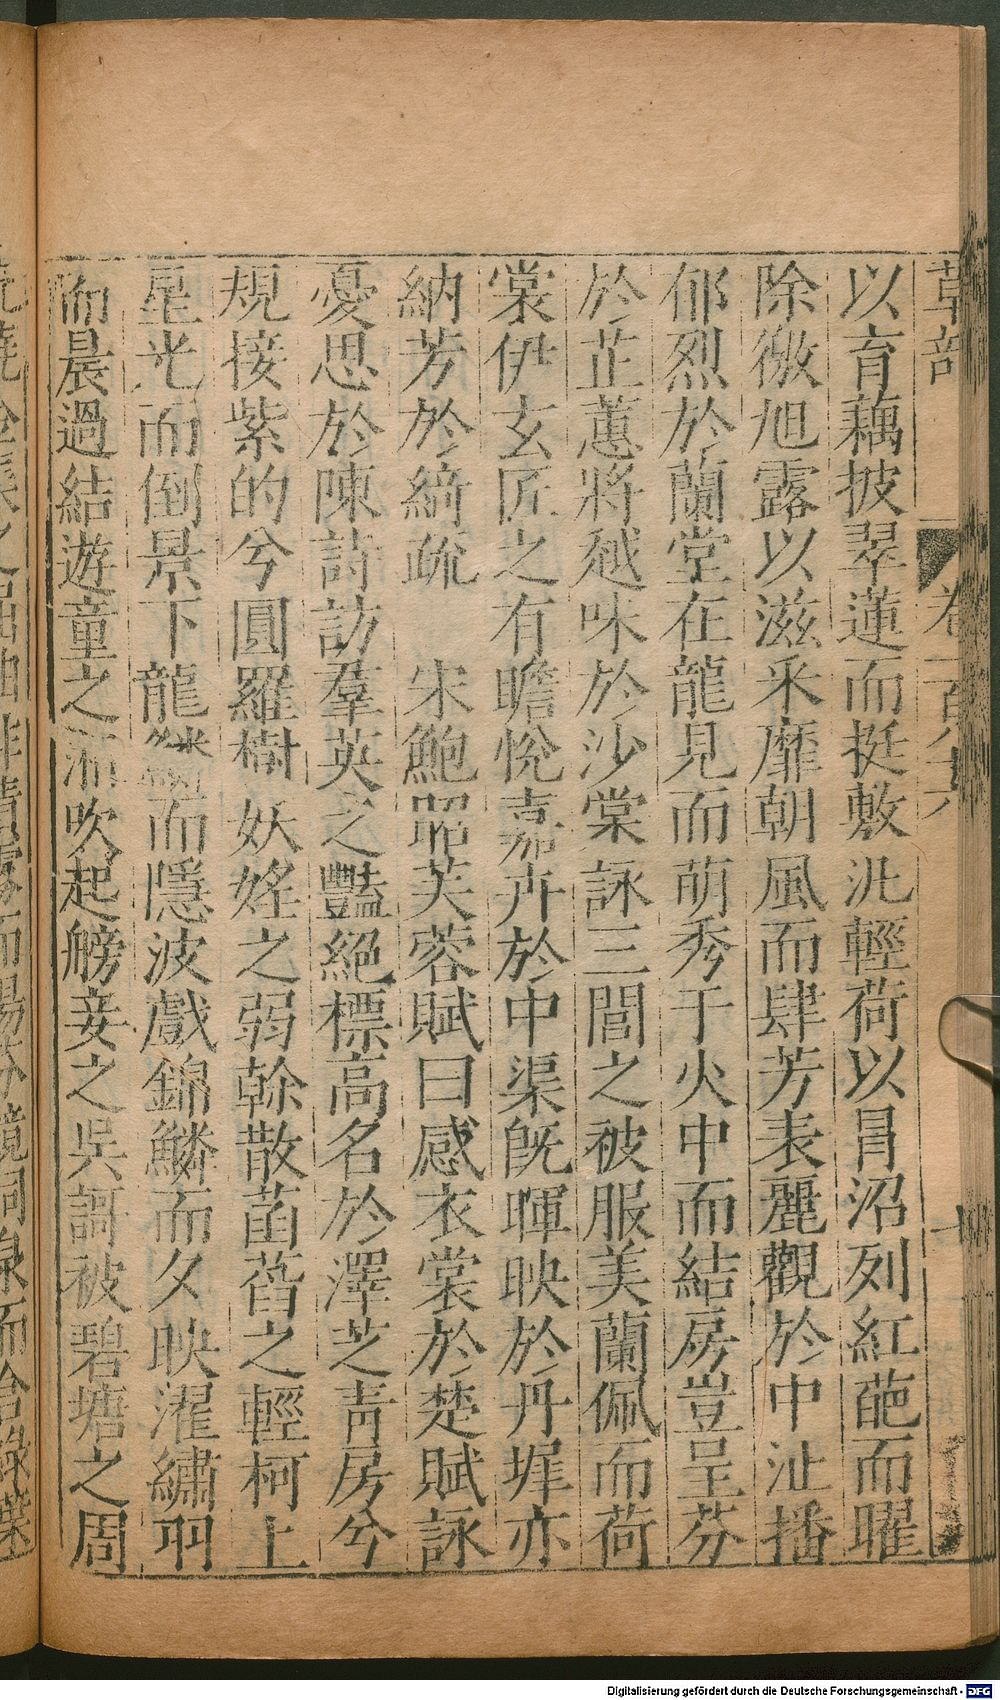 草部 卷一百八十六 十
以育藕披翠蓮而挺敷泚輕荷以冒沼列紅葩而曜
除微旭露以滋采靡朝風而肆芳表麗觀於中沚播
郁烈於蘭堂在龍見而萌秀于火中而結房豈呈芬
於芷蕙將越味於沙棠詠三閭之被服美蘭佩而荷
裳伊玄匠之有瞻悅嘉卉於中渠旣暉映於丹墀亦
納芳於綺疏 宋鮑昭芙蓉賦曰感衣裳於楚賦詠
憂思於陳詩訪羣英之豔絕標高名於澤芝青房兮
規接紫的兮圓羅樹妖媱之弱幹散菡萏之輕柯上
星光而倒景下龍鱗而隱波戲錦鱗而夕映濯繡羽
而晨過結遊童之湘吹起艕妾之吳謌被碧塘之周
Digitalisierung gefördert durch die Deutsche Forschungsgemeinschaft - DFG